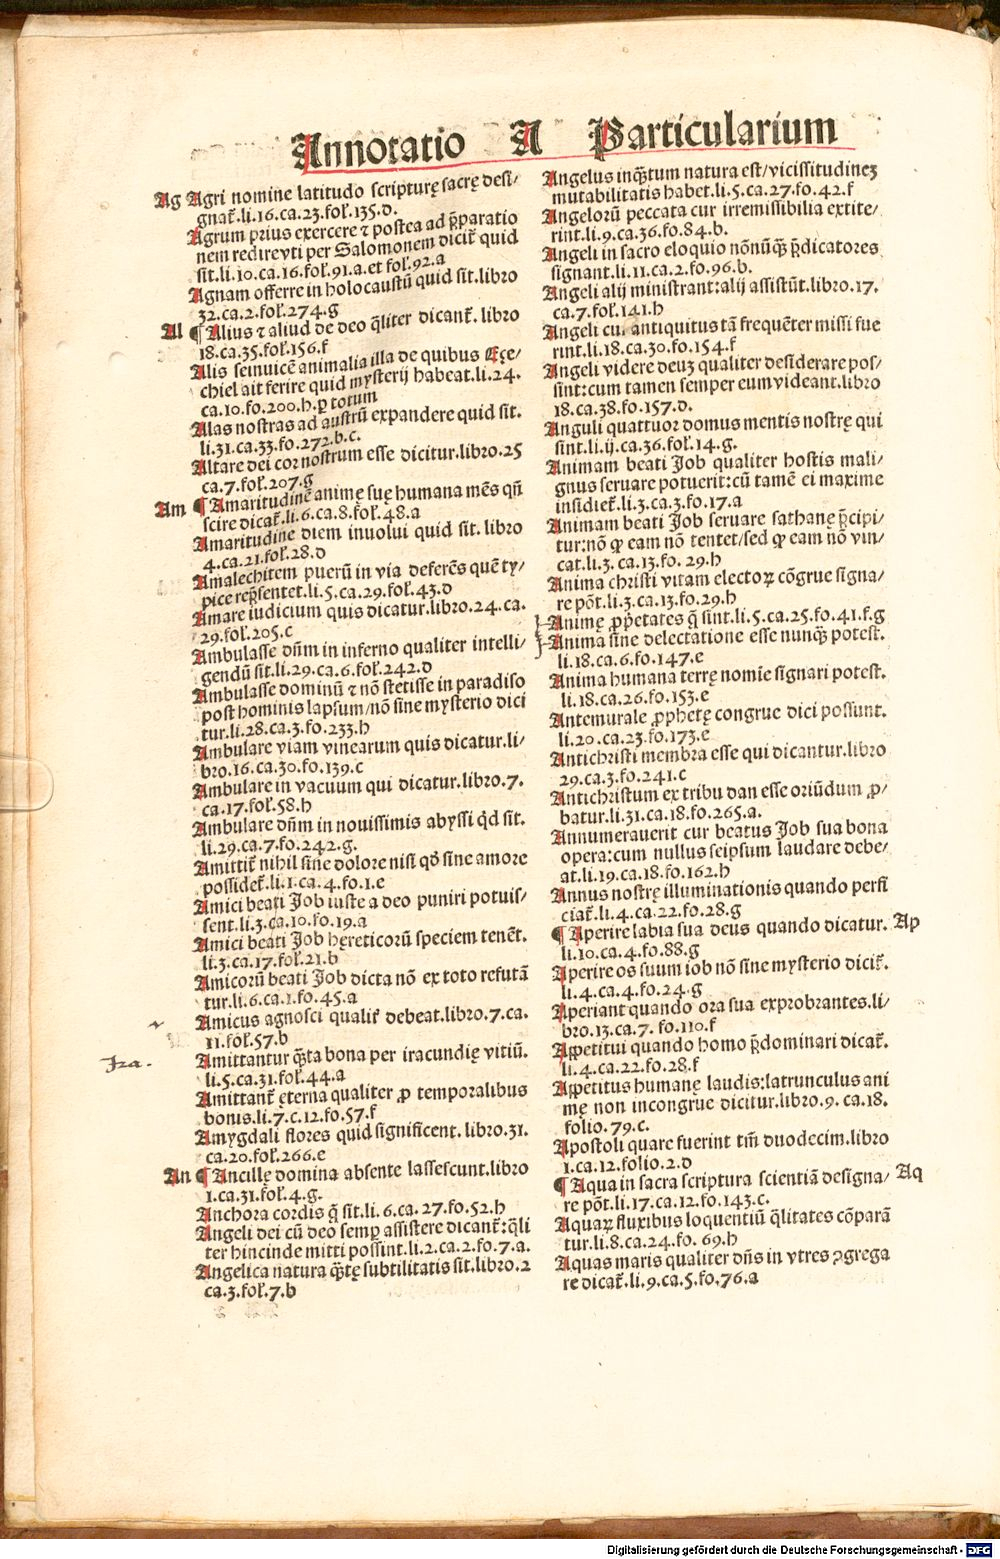 Annotatio A Particularium
Ag Agri nomine latitudo scripturę sacrę desi/
gnat̃.li.16.ca.23.foł.135.d.
Agrum prius exercere ⁊ postea ad p̄paratio
nem redire vti per Salomonem dicit̃ quid
sit.li.10.ca.16.foł.91.a.et foł.92.a
Agnam offerre in holocaustū quid sit.libro
32.ca.2.foł.274.g
Al ¶ Alius ⁊ aliud de deo q̄liter dicant̃. libro
18.ca.35.foł.156.f
Alis seinuicē animalia illa de quibus Eçe/
chiel ait ferire quid mysterij habeat.li.24.
ca.10.fo.200.h.ꝑ totum
Alas nostras ad austrū expandere quid sit.
li.31.ca.33.fo.272.b.c.
Altare dei cor nostrum esse dicitur.libro.25
ca.7.foł.207.g
Am ¶ Amaritudinē animę suę humana mēs qñ
scire dicat̃.li.6.ca.8.foł.48.a
Amaritudine diem inuolui quid sit. libro
4.ca.21.foł.28.d
Amalechitem puerū in via deferēs quē ty/
pice rep̄sentet.li.5.ca.29.foł.43.d
Amare iudicium quis dicatur.libro.24.ca.
29.foł.205.c
Ambulasse dñm in inferno qualiter intelli/
gendū sit.li.29.ca.6.foł.242.d
Ambulasse dominū ⁊ nō stetisse in paradiso
post hominis lapsum/nō sine mysterio dici
tur.li.28.ca.3.fo.233.h
Ambulare viam vinearum quis dicatur.li/
bro.16.ca.30.fo.139.c
Ambulare in vacuum qui dicatur.libro.7.
ca.17.foł.58.h
Ambulare dñm in nouissimis abyssi qd̄ sit.
li.29.ca.7.fo.242.g.
Amittit̃ nihil sine dolore nisi qō sine amore
possidet̃.li.1.ca.4.fo.1.e
Amici beati Job iuste a deo puniri potuis/
sent.li.3.ca.10.fo.19.a
Amici beati Job hęreticorū speciem tenēt.
li.3.ca.17.foł.21.b
Amicorū beati Job dicta nō ex toto refutā
tur.li.6.ca.1.fo.45.a
Amicus agnosci qualit̃ debeat.libro.7.ca.
11.foł.57.b
Ira.
Amittantur q̄ta bona per iracundię vitiū.
li.5.ca.31.foł.44.a
Amittant̃ ęterna qualiter ꝓ temporalibus
bonis.li.7.c.12.fo.57.f
Amygdali flores quid significent. libro.31.
ca.20.foł.266.e
An ¶ Ancillę domina absente lassescunt.libro
1.ca.31.foł.4.g.
Anchora cordis q̄ sit.li.6.ca.27.fo.52.h
Angeli dei cū deo semꝑ assistere dicant̃:q̄li
ter hincinde mitti possint.li.2.ca.2.fo.7.a.
Angelica natura q̄tę subtilitatis sit.libro.2
ca.3.foł.7.b
Angelus inq̄tum natura est/vicissitudineȝ
mutabilitatis habet.li.5.ca.27.fo.42.f
Angelorū peccata cur irremissibilia extite/
rint.li.9.ca.36.fo.84.b.
Angeli in sacro eloquio nōnūq̄ p̄dicatores
signant.li.11.ca.2.fo.96.b.
Angeli alij ministrant:alij assistūt.libro.17.
ca.7.foł.141.h
Angeli cur antiquitus tā frequēter missi fue
rint.li.18.ca.30.fo.154.f
Angeli videre deuȝ qualiter desiderare pos/
sint:cum tamen semper eum videant.libro
18.ca.38.fo.157.d.
Anguli quattuor domus mentis nostrę qui
sint.li.ij.ca.36.foł.14.g.
Animam beati Job qualiter hostis mali/
gnus seruare potuerit:cū tamē ei maxime
insidiet̃.li.3.ca.3.fo.17.a
Animam beati Job seruare sathanę p̄cipi/
tur:nō ꝙ eam nō tentet/sed ꝙ eam nō vin/
cat.li.3.ca.13.fo.29.h
Anima christi vitam electoꝝ cōgrue signa/
re pōt.li.3.ca.13.fo.29.h
Animę ꝓp̄etates q̄ sint.li.5.ca.25.fo.41.f.g
Anima sine delectatione esse nunq̄ potest.
li.18.ca.6.fo.147.e
Anima humana terrę nomie signari potest.
li.18.ca.26.fo.153.e
Antemurale ꝓphetę congrue dici possunt.
li.20.ca.23.fo.173.e
Antichristi membra esse qui dicantur.libro
29.ca.3.fo.241.c
Antichristum ex tribu dan esse oriūdum ꝓ/
batur.li.31.ca.18.fo.265.a.
Annumerauerit cur beatus Job sua bona
opera:cum nullus seipsum laudare debe/
at.li.19.ca.18.fo.162.h
Annus nostrę illuminationis quando perfi
ciat̃.li.4.ca.22.fo.28.g
¶ Aperire labia sua deus quando dicatur. Ap
li.10.ca.4.fo.88.g
Aperire os suum iob nō sine mysterio dicit̃.
li.4.ca.4.fo.24.g
Aperiant quando ora sua exprobrantes.li/
bro.13.ca.7.fo.110.f
Appetitui quando homo p̄dominari dicat̃.
li.4.ca.22.fo.28.f
Appetitus humanę laudis:latrunculus ani
mę non incongrue dicitur.libro.9.ca.18.
folio.79.c.
Apostoli quare fuerint tm̄ duodecim.libro
1.ca.12.folio.2.d
¶ Aqua in sacra scriptura scientiā designa/ Aq
re pōt.li.17.ca.12.fo.143.c.
Aquaꝝ fluxibus loquentiū q̄litates cōparā
tur.li.8.ca.24.fo.69.h
Aquas maris qualiter dñs in vtres ꝯgrega
re dicat̃.li.9.ca.5.fo.76.a
Digitalisierung gefördert durch die Deutsche Forschungsgemeinschaft - DFG